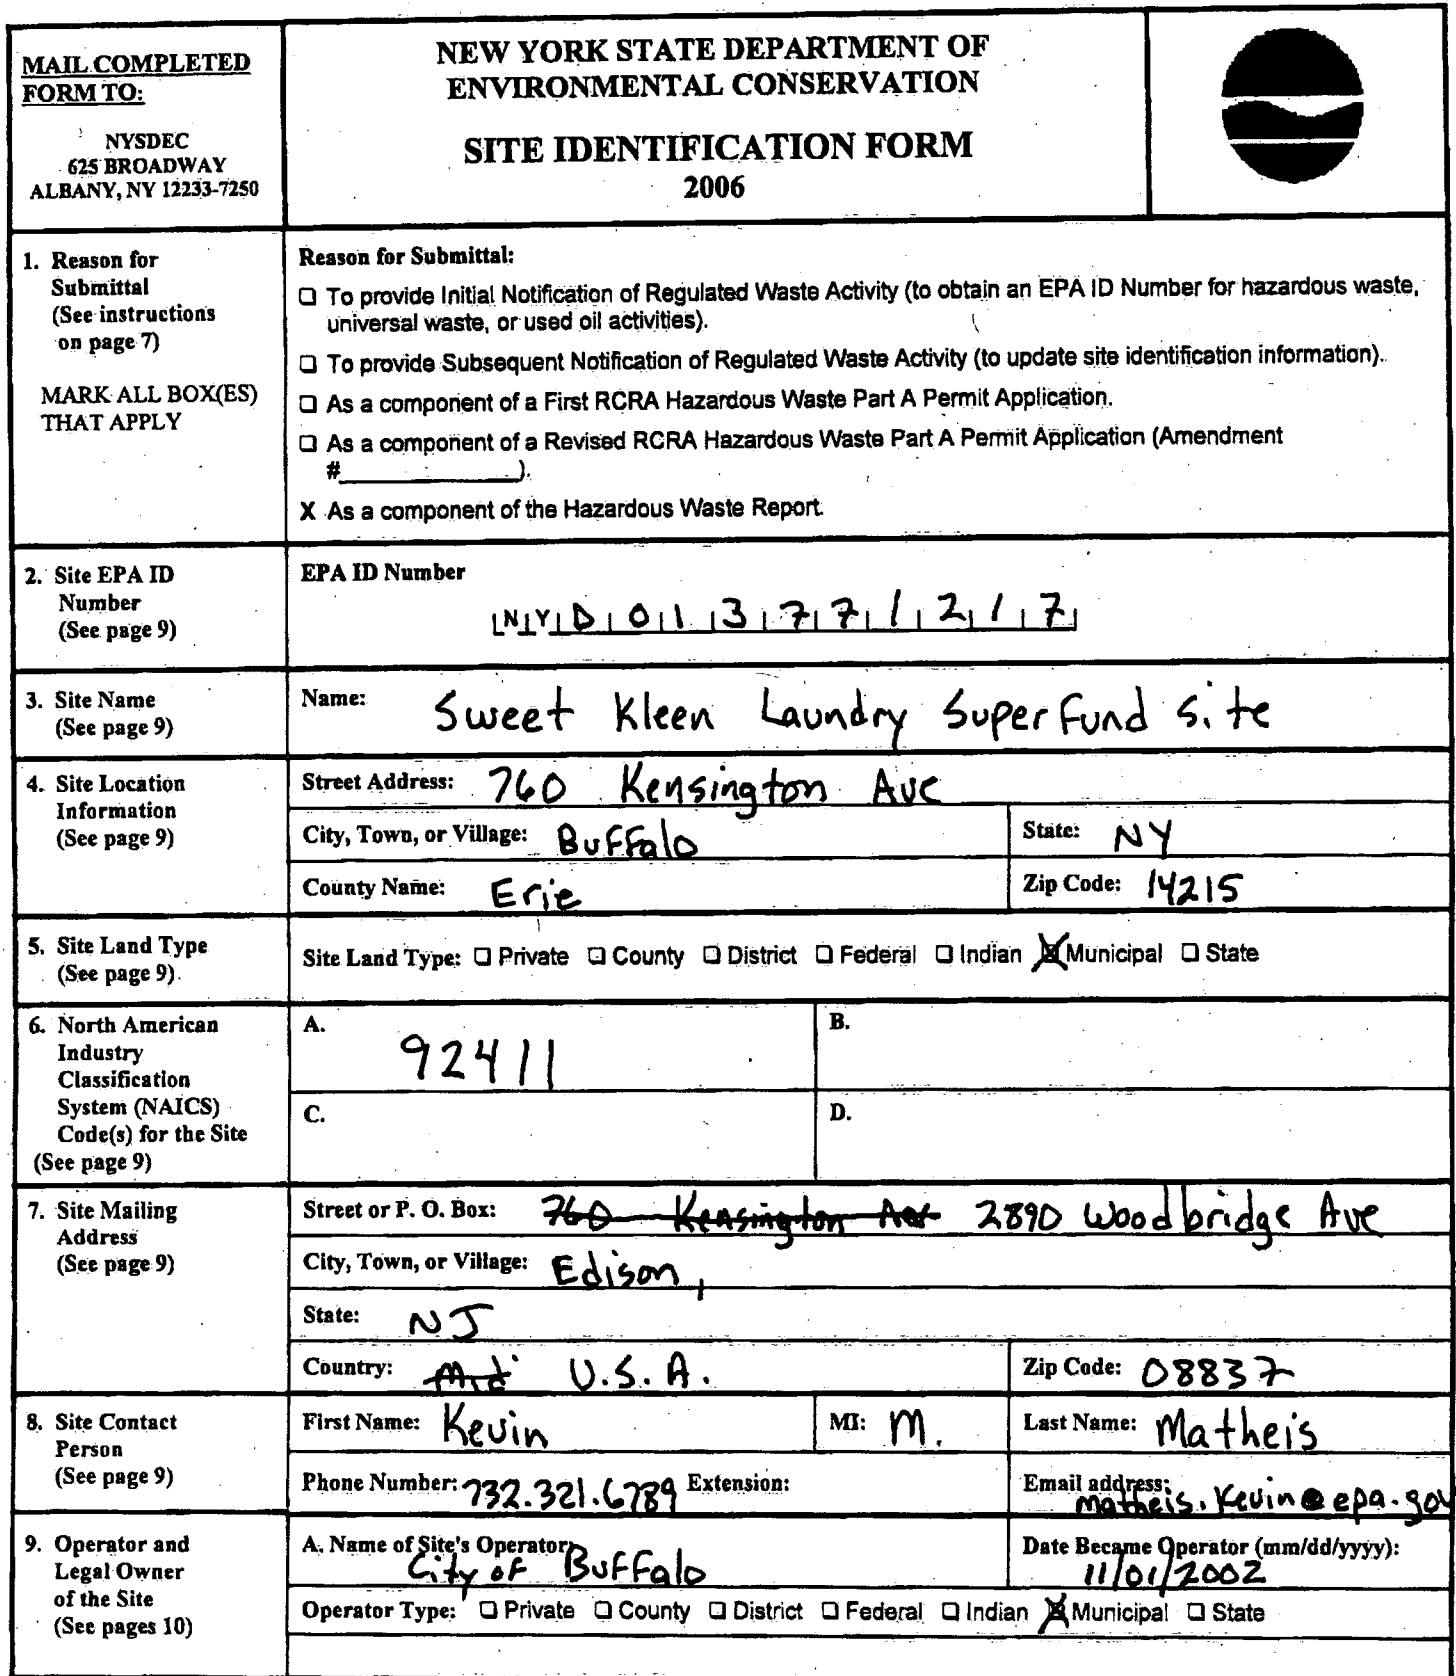 MAIL COMPLETED
FORM TO:
NYSDEC
625 BROADWAY
ALBANY, NY 12233-7250
NEW YORK STATE DEPARTMENT OF
ENVIRONMENTAL CONSERVATION
SITE IDENTIFICATION FORM
2006
1. Reason for
Submittal
(See instructions
on page 7)
MARK ALL BOX(ES)
THAT APPLY
Reason for Submittal:
☐ To provide Initial Notification of Regulated Waste Activity (to obtain an EPA ID Number for hazardous waste,
universal waste, or used oil activities).
☐ To provide Subsequent Notification of Regulated Waste Activity (to update site identification information).
☐ As a component of a First RCRA Hazardous Waste Part A Permit Application.
☐ As a component of a Revised RCRA Hazardous Waste Part A Permit Application (Amendment
#____________).
X As a component of the Hazardous Waste Report.
2. Site EPA ID
Number
(See page 9)
EPA ID Number
NYD013771217
3. Site Name
(See page 9)
Name: Sweet Kleen Laundry Superfund Site
4. Site Location
Information
(See page 9)
Street Address: 760 Kensington Ave
City, Town, or Village: Buffalo
State: NY
County Name: Erie
Zip Code: 14215
5. Site Land Type
(See page 9)
Site Land Type: ☐ Private ☐ County ☐ District ☐ Federal ☐ Indian ☒ Municipal ☐ State
6. North American
Industry
Classification
System (NAICS)
Code(s) for the Site
(See page 9)
A. 92411
B.
C.
D.
7. Site Mailing
Address
(See page 9)
Street or P. O. Box: 760 Kensington Ave 2890 Woodbridge Ave
City, Town, or Village: Edison,
State: NJ
Country: U.S.A.
Zip Code: 08837
8. Site Contact
Person
(See page 9)
First Name: Kevin
MI: M.
Last Name: Matheis
Phone Number: 732.321.6789 Extension:
Email address:
matheis.kevin@epa.gov
9. Operator and
Legal Owner
of the Site
(See pages 10)
A. Name of Site's Operator:
City of Buffalo
Date Became Operator (mm/dd/yyyy):
11/01/2002
Operator Type: ☐ Private ☐ County ☐ District ☐ Federal ☐ Indian ☒ Municipal ☐ State